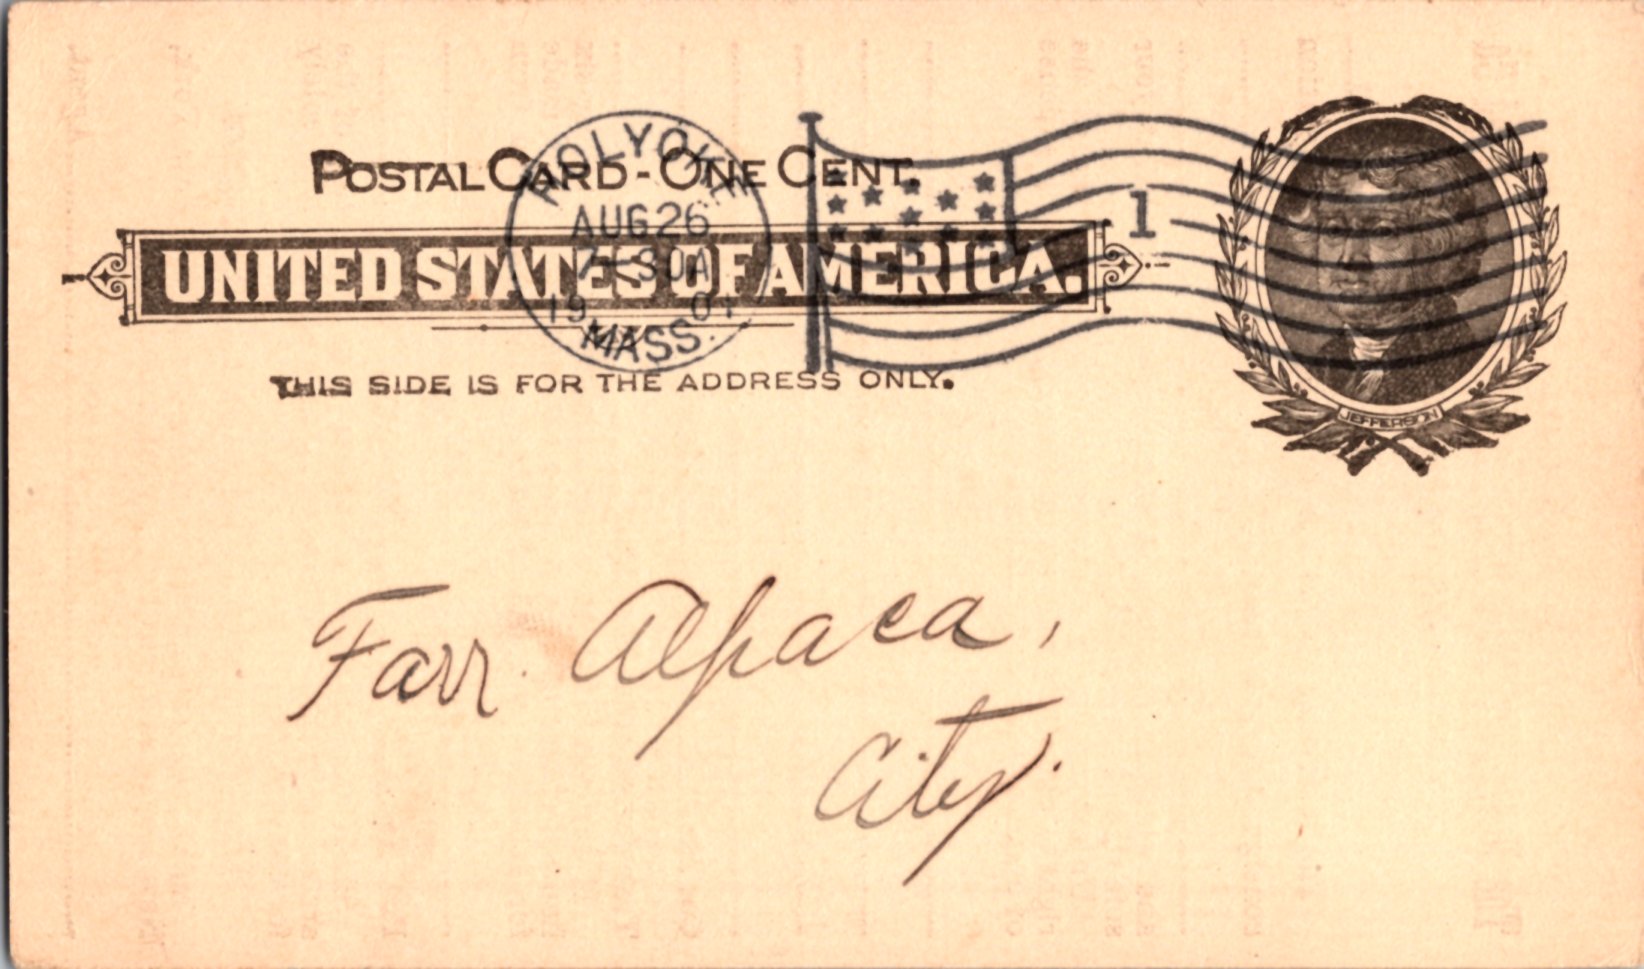 POSTAL CARD - ONE CENT.
UNITED STATES OF AMERICA.
THIS SIDE IS FOR THE ADDRESS ONLY.
HOLYOKE
AUG 26
7-30A
1901
MASS.
1
JEFFERSON
Farr Alpaca,
City.